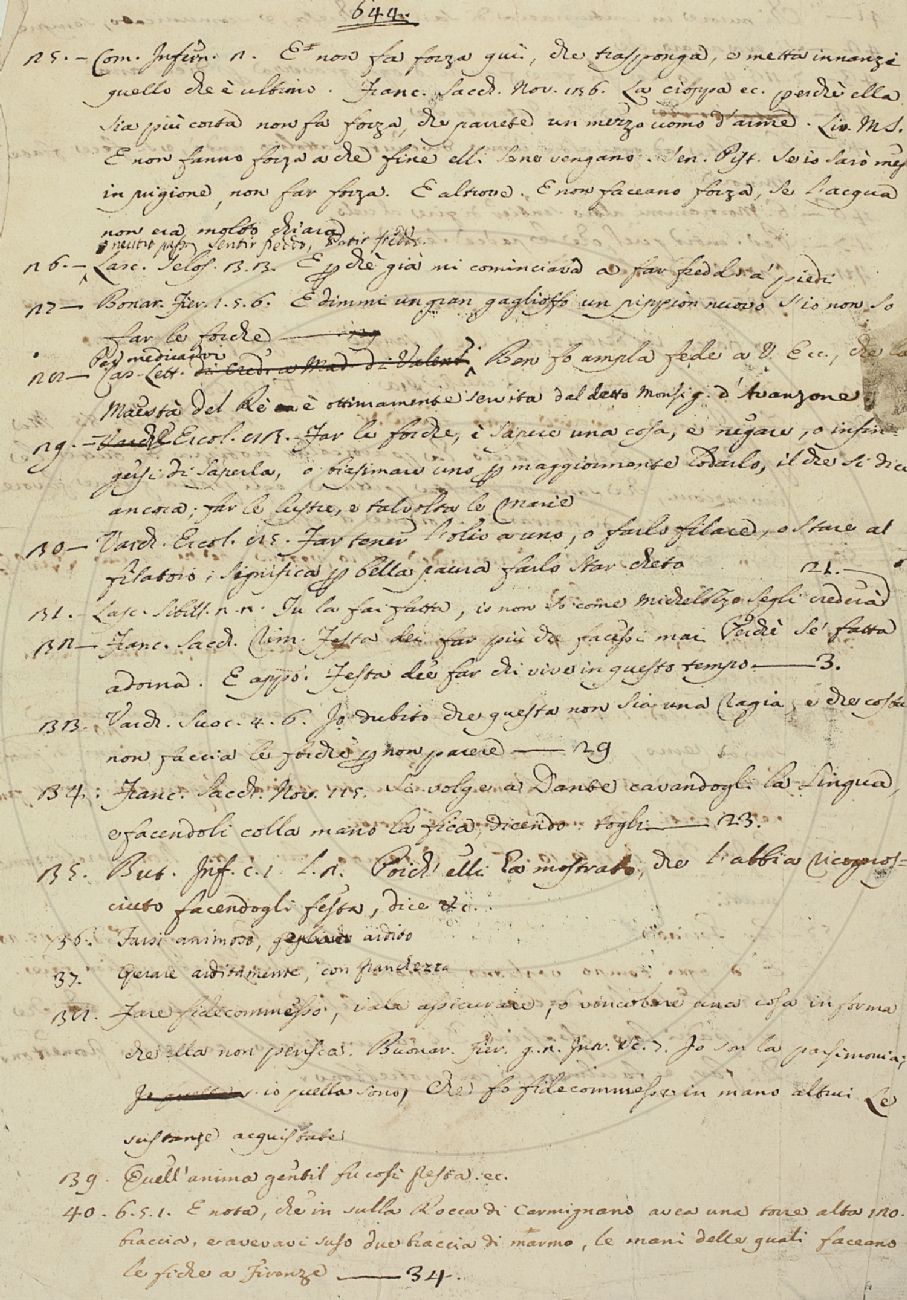 644.
125. - Com. Infern. 12. E non fa forza quì, che trasponga, e metta innanzi
quello che è ultimo. Franc. Sacch. Nov. 136. La cioppa ec. perchè ella
sia più corta non fa forza, che parrete un mezzo uomo d'arme. Liv. M. S.
E non fanno forza a che fine elli sene vengano. Sen. Pist. Se io sarò mes
in prigione, non far forza. E altrove. E non faceano forza, se l'acqua
non era molto chiara
sentir freddo, patir freddo.
126. - Lasc. Gelos. 3. 3. E perchè già mi cominciava a far freddo a' piedi
127 - Bonar. Fier. 1. 5. 6. E dimmi un gran gaglioffo un pippion nuovo S'io non so
far le fiche
Per medicarsi
128 - Cas. Lett. Ben fo ampla fede a V. Ecc., che la
Maestà del Rè è ottimamente servita dal detto Monsig. d'Avanzone
129. - Varch. Ercol. 83. Far le forche, è sapere una cosa, e negare, o infin-
gersi di saperla, o biasimare uno per maggiormente lodarlo, il che si dice
ancora; far le lustre, e talvolta le marie
130 - Varch. Ercol. 85. Far tener l'olio a uno, o farlo filare, o stare al
filatoio; significa per bella paura farlo star cheto 21.
131. - Lasc. Sibill. 2. 2. Tu la fai fatta, io non so come Michelozzo segli crederà
132 - Franc. Sacch. Rim. Festa dei far più che facessi mai Perchè se' fatta
adorna. E appo. Festa dee far chi vive in questo tempo 3.
133. Varch. Suoc. 4. 6. Io dubito che questa non sia una ragia, e che costui
non faccia le forche per non parere 29
134. Franc. Sacch. Nov. 115. Si volge a Dante cavandogli la lingua,
e facendoli colla mano la fica, dicendo: togli 23.
135. But. Inf. c. 1. Poich' elli ha mostrato, che l'abbia riconos=
ciuto facendogli festa, dice &c.
36. Farsi animoso, pigliare ardito
37. Operare arditamente, con franchezza
138. Fare fidecommesso, vale assicurare, o vincolare una cosa in forma
che ella non perisca. Buonar. Fier. g. 2. Intr. Sc. 3. Io son la parsimonia;
io quella sono, Che fo fidecommesso in mano altrui Le
sustanze acquistate
139. Quell'anima gentil fu così presta. ec.
40. 6. 5. 1. E nota, che in sulla Rocca di Carmignano avea una torre alta 120.
braccia, e aveavi suso due braccia di marmo, le mani delle quali faceano
le fiche a Firenze 34.